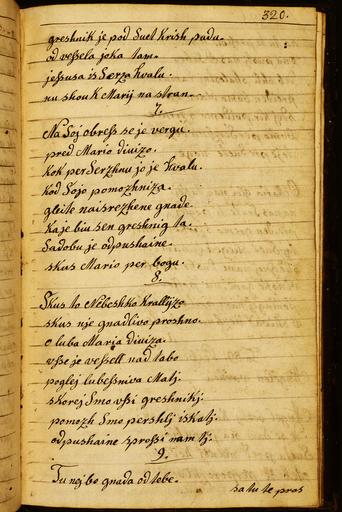 320.
greshnik je pod Suet krish padu.
od vessela joka tam.
jessusa is Serza hvalu.
nu skou K Marij na stran.
7.
Na Soj obress se je vergu.
pred Mario divizo.
kok per Serzhnu jo je hvalu.
kod Sojo pomozhniza.
gleite naisrezhene gnade.
kaje biu sen greshnig ta.
Sadobu je odpushaine.
skus Mario per bogu.
8.
Skus to Nebeshko krallizo
skus nje gnadlivo proshno.
o luba Maria diviza.
vsse je vessell nad tabo
poglej lubessniva Matj.
skorej Smo vssi greshnikj.
pomozh Smo pershlj iskatj.
odpushaine sprossi nam tj.
9.
Tu nej bo gnada od tebe.
sa tu te pros